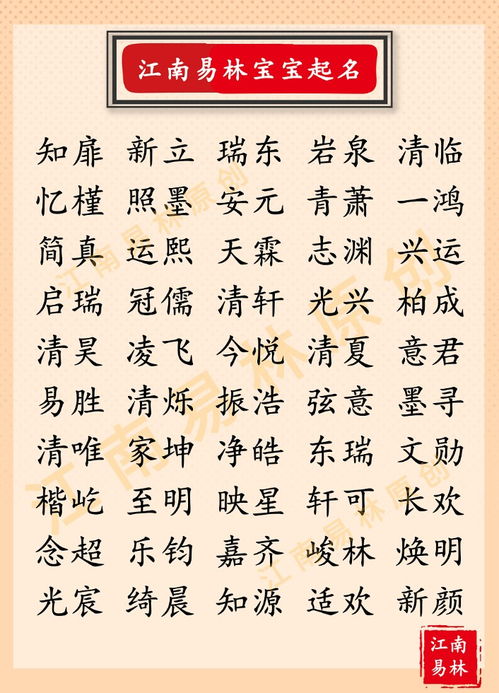 江南易林宝宝起名
知扉 新立 瑞东 岩泉 清临
忆槿 照墨 安元 青萧 一鸿
简真 运熙 天霖 志渊 兴运
启瑞 冠儒 清轩 光兴 柏成
清昊 凌飞 今悦 清夏 意君
易胜 清烁 振浩 弦意 墨寻
清唯 家坤 净皓 东瑞 文勋
楷屹 至明 映星 轩可 长欢
念超 乐钧 嘉齐 峻林 焕明
光宸 绮晨 知源 适欢 新颜
江南易林原创
江南易林原创
江南易林原创
江南
易林